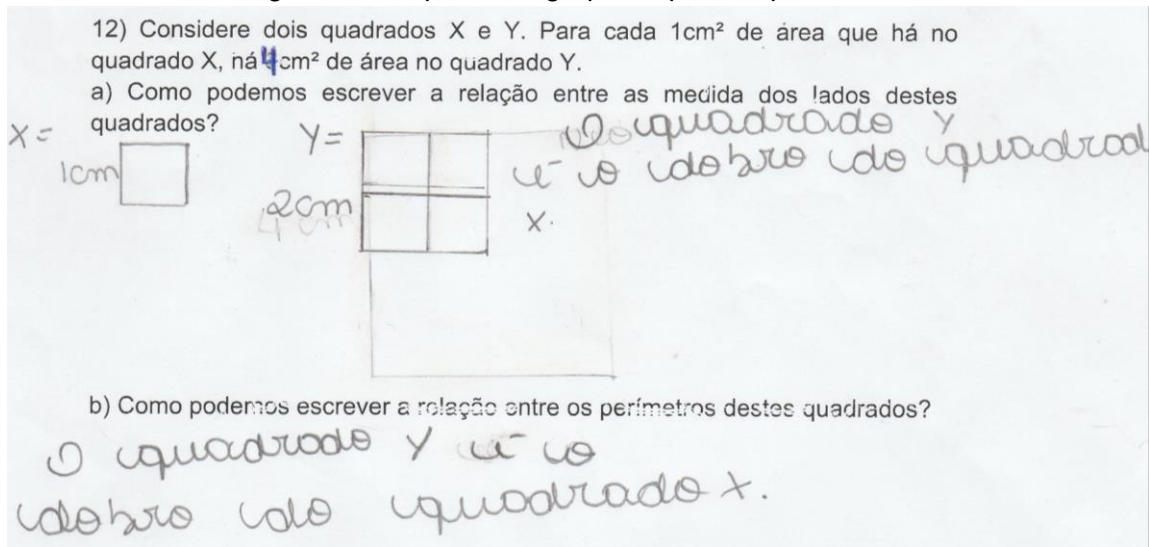 12) Considere dois quadrados X e Y. Para cada 1cm² de área que há no
quadrado X, há 4cm² de área no quadrado Y.
a) Como podemos escrever a relação entre as medida dos lados destes
quadrados?
X =
1cm
Y =
2cm
4 cm
O quadrado Y
é o dobro do quadrad
X.
b) Como podemos escrever a relação entre os perímetros destes quadrados?
O quadrado Y é o
dobro do quadrado X.